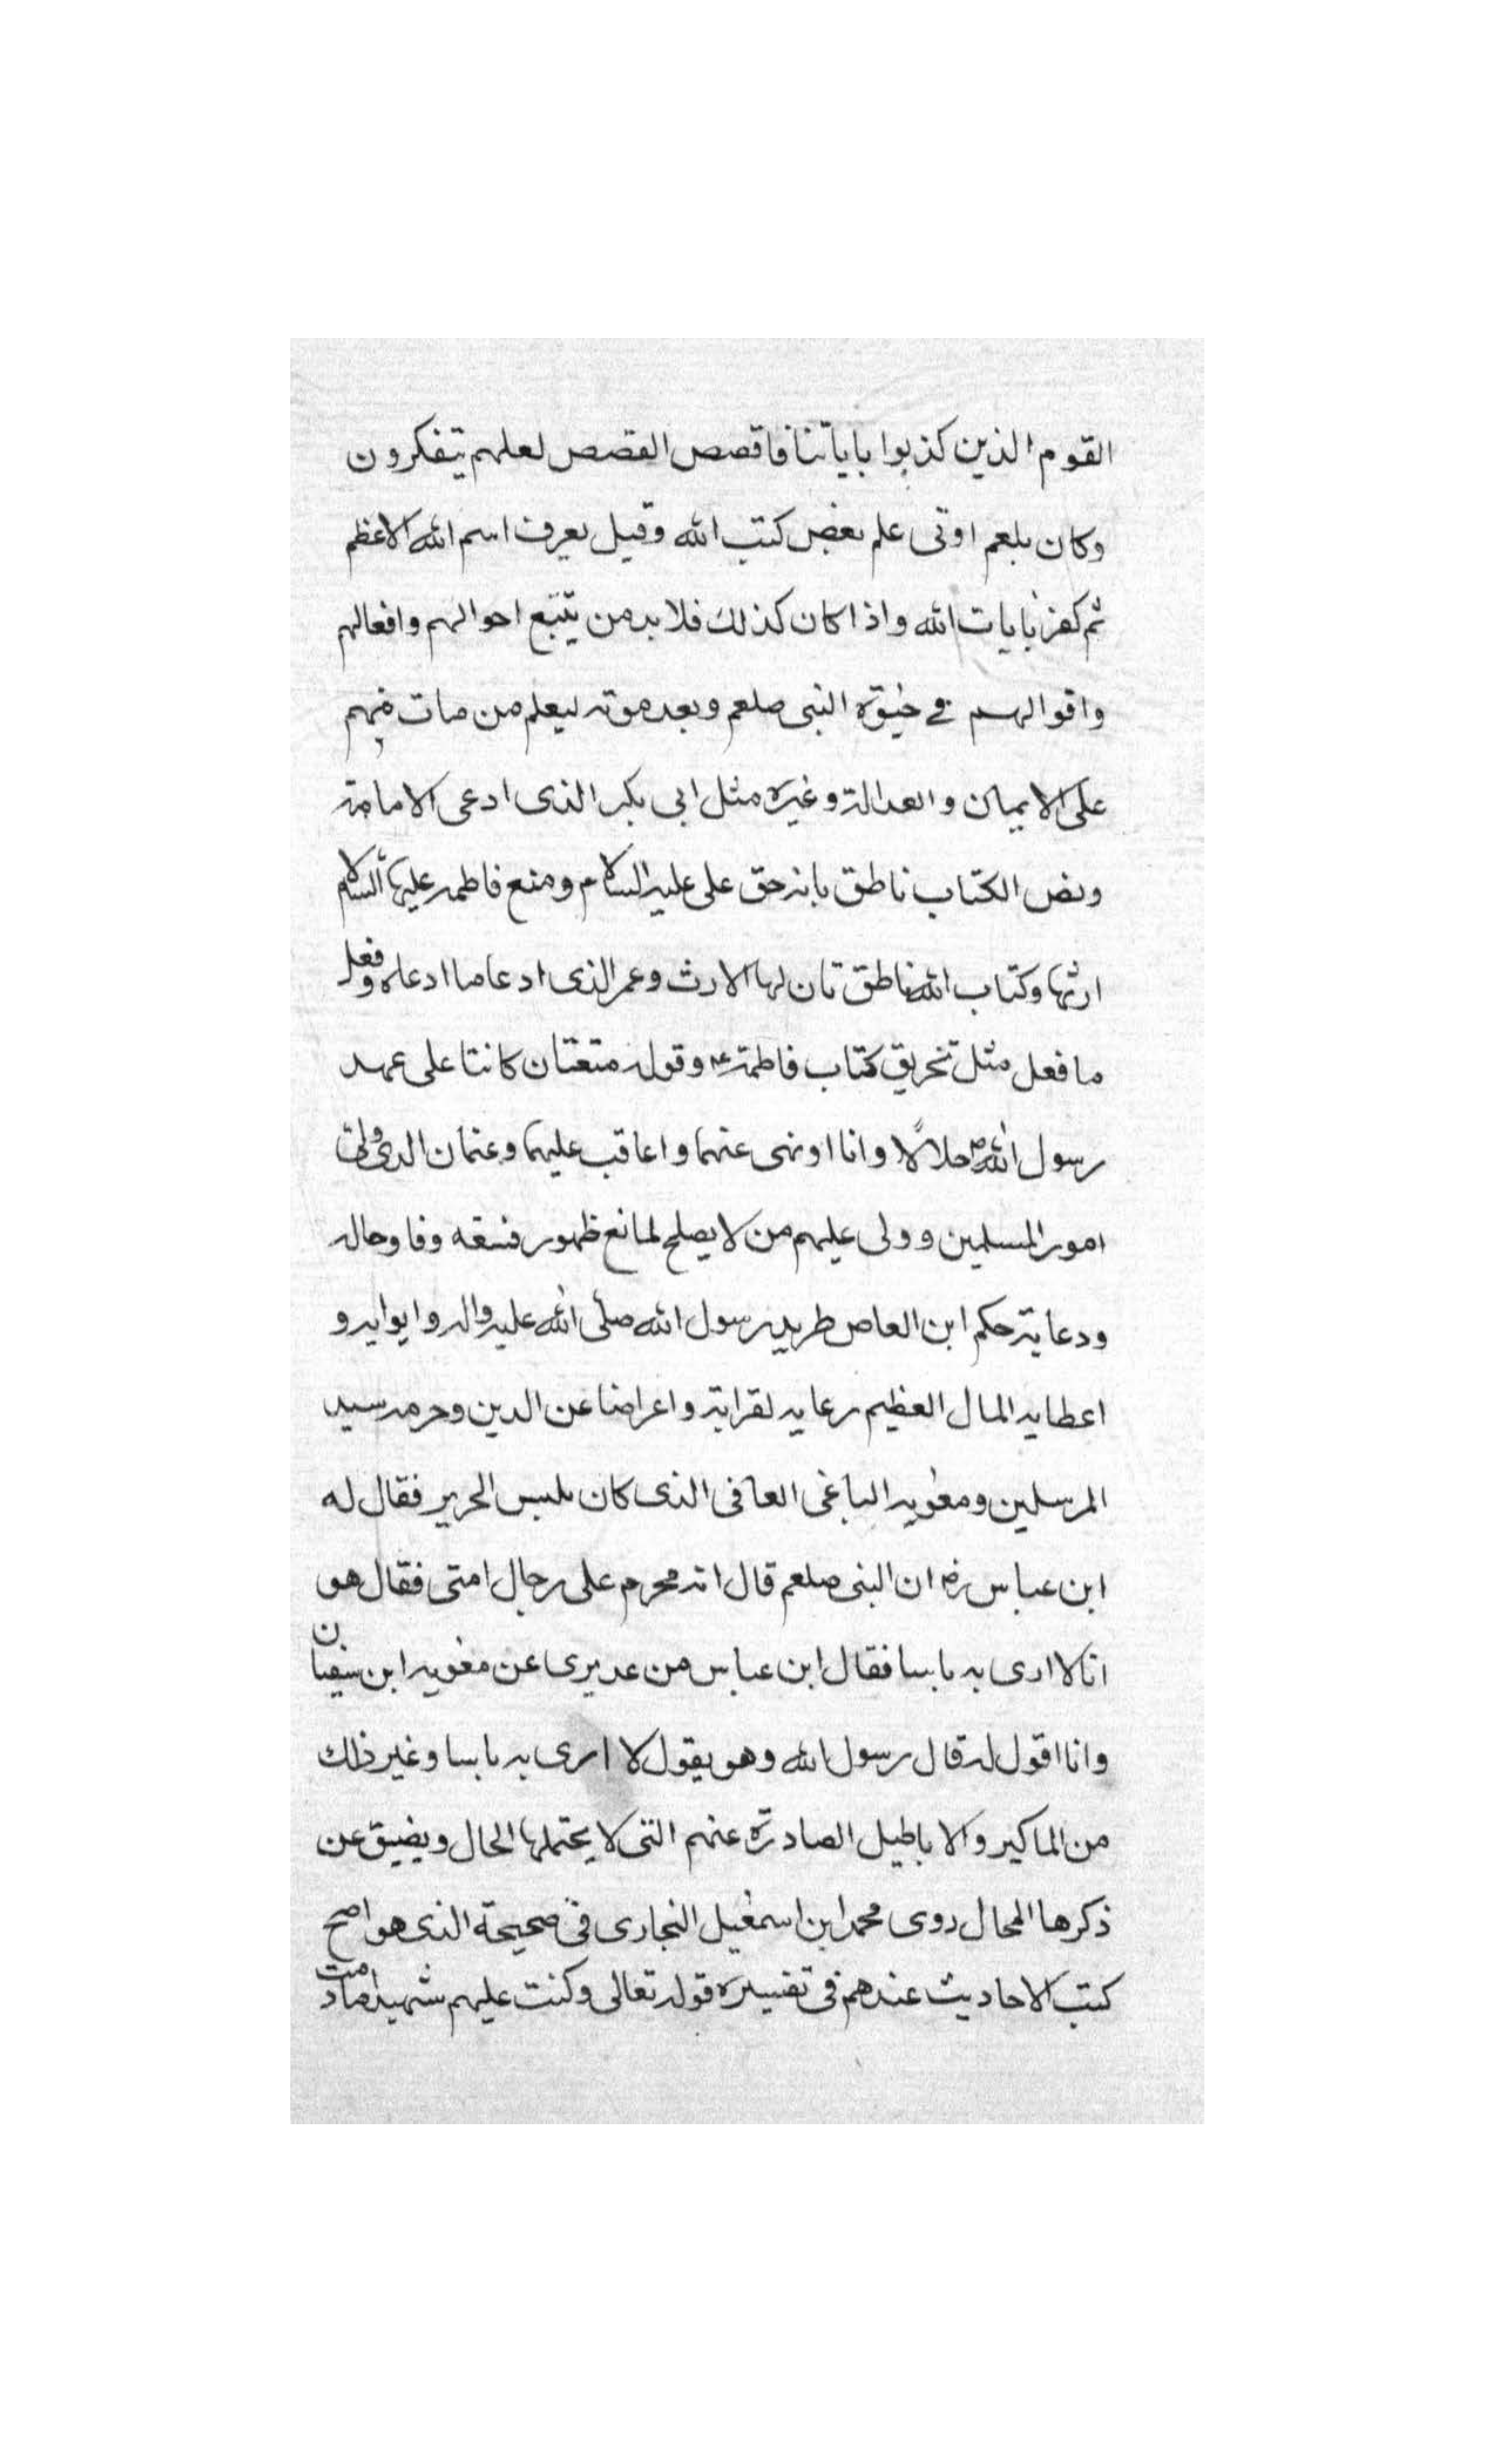 القوم الذين كذبوا باياتنا فاقصص القصص لعلهم يتفكرون
وكان بلعم اوتى علم بعض كتب الله وقيل يعرف اسم الله الاعظم
ثم كفر بايات الله واذا كان كذلك فلا بد من يتتبع احوالهم وافعالهم
واقوالهم في حيوة النبى صلعم وبعد موته ليعلم من مات منهم
على الايمان والعدالة وغيره مثل ابى بكر الذى ادعى الامامة
ونص الكتاب ناطق بانه حق على عليه السلام ومنع فاطمه عليها السلام
ارثها وكتاب الله ناطق بان لها الارث وعمر الذى ادعا ما ادعاه وفعل
ما فعل مثل تخريق كتاب فاطمة ع وقوله متعتان كانتا على عهد
رسول الله ص حلالا وانا اونهى عنهما واعاقب عليهما وعثمان الذى ولى
امور المسلمين وولى عليهم من لا يصلح لمانع ظهور فسقه وفا وحاله
ودعاية حكم ابن العاص طريد رسول الله صلى الله عليه واله وايوايه و
اعطايه المال العظيم رعايه لقرابة واعراضا عن الدين وحرمه سيد
المرسلين ومعويه الباغى العافى الذى كان يلبس الحرير فقال له
ابن عباس رض ان البنى صلعم قال انه محرم على رجال امتى فقال هو
انا لا ارى به باسا فقال ابن عباس من عديرى عن معويه ابن سفيان
وانا اقول له قال رسول الله وهو يقول لا ارى به باسا وغير ذلك
من الماكير والاباطيل الصادرة عنهم التى لا يحتملها الحال ويضيق عن
ذكرها المحال روى محمد ابن اسمعيل النجارى فى صحيحة الذى هو اصح
كتب الاحاديث عندهم فى تفسيره قوله تعالى وكنت عليهم شهيدا ما دمت